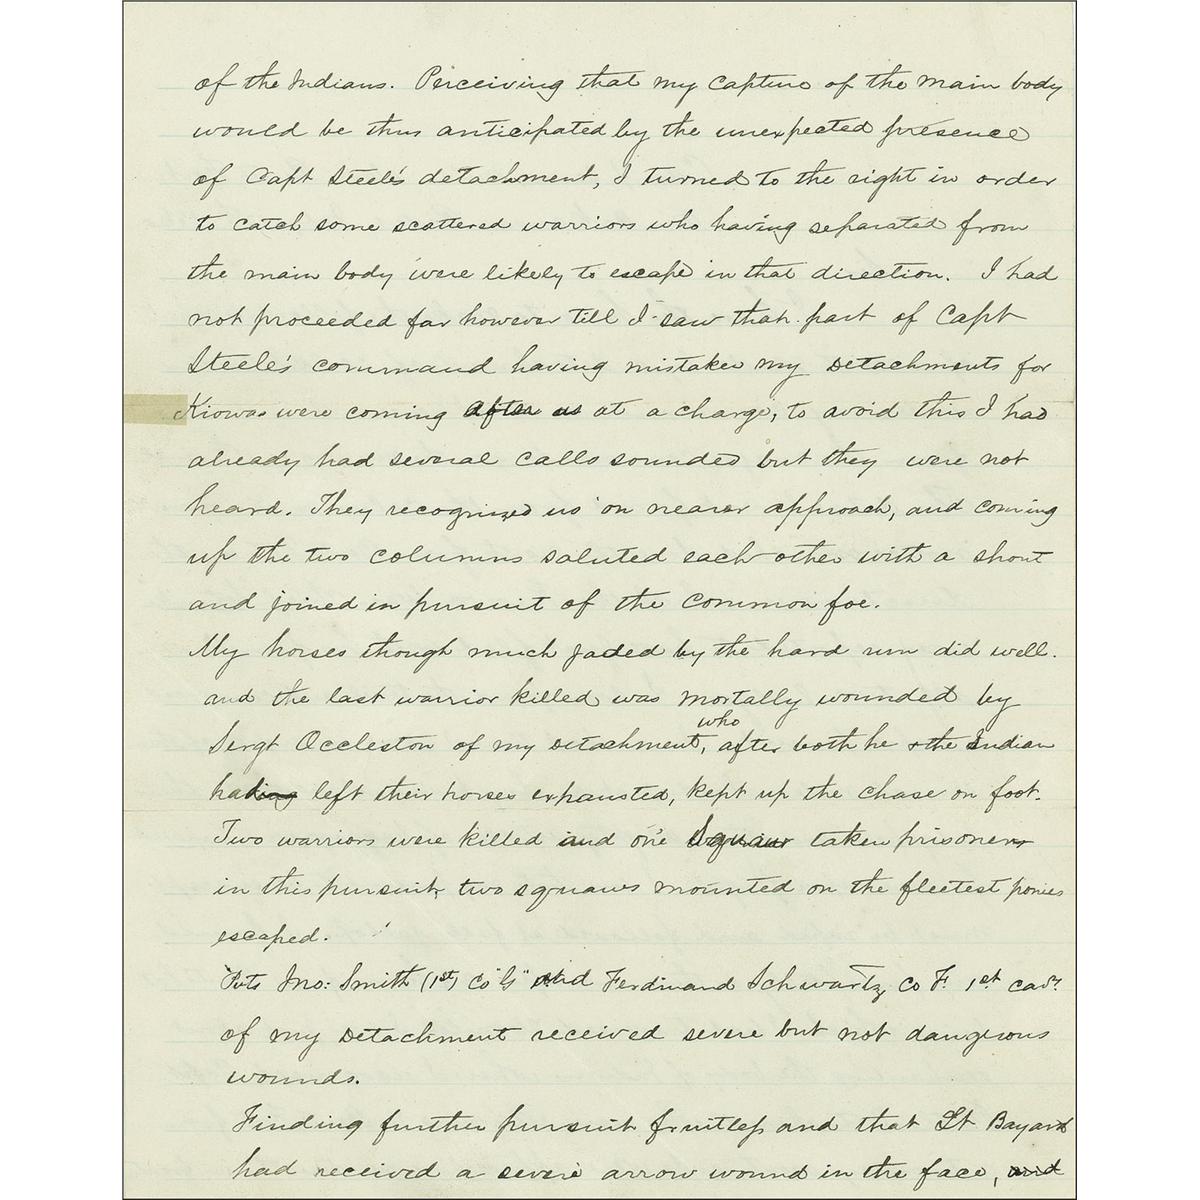 of the Indians. Perceiving that my capture of the main body
would be thus anticipated by the unexpected presence
of Capt Steele's detachment, I turned to the right in order
to catch some scattered warriors who having separated from
the main body were likely to escape in that direction. I had
not proceeded far however till I saw that part of Capt
Steele's command having mistaken my detachments for
Kiowas were coming after us at a charge, to avoid this I had
already had several calls sounded but they were not
heard. They recognized us on nearer approach, and coming
up the two columns saluted each other with a shout
and joined in pursuit of the common foe.
My horses though much jaded by the hard run did well.
and the last warrior killed was mortally wounded by
who
Sergt Occleston of my detachment, after both he & the Indian
hading left their horses exhausted, kept up the chase on foot.
Two warriors were killed and one Squaw taken prisoners
in this pursuit, two squaws mounted on the fleetest ponies
escaped.
Pvts Jno: Smith (1st) Co "G" and Ferdinand Schwartz Co F. 1st Cav.
of my detachment received severe but not dangerous
wounds.
Finding further pursuit fruitless and that Lt Bayard
had received a severe arrow wound in the face, and